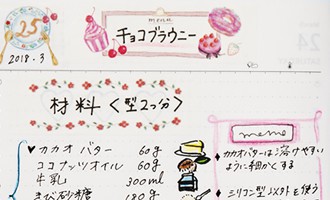 25
2018.3
menu
チョコブラウニー
材料〈型2つ分〉
♥ カカオバター 60g
ココナッツオイル 60g
牛乳 300ml
きび砂糖 180g
memo
♦ カカオバターは溶けやすい
ように細かくする
♦ シリコン型以外を使う